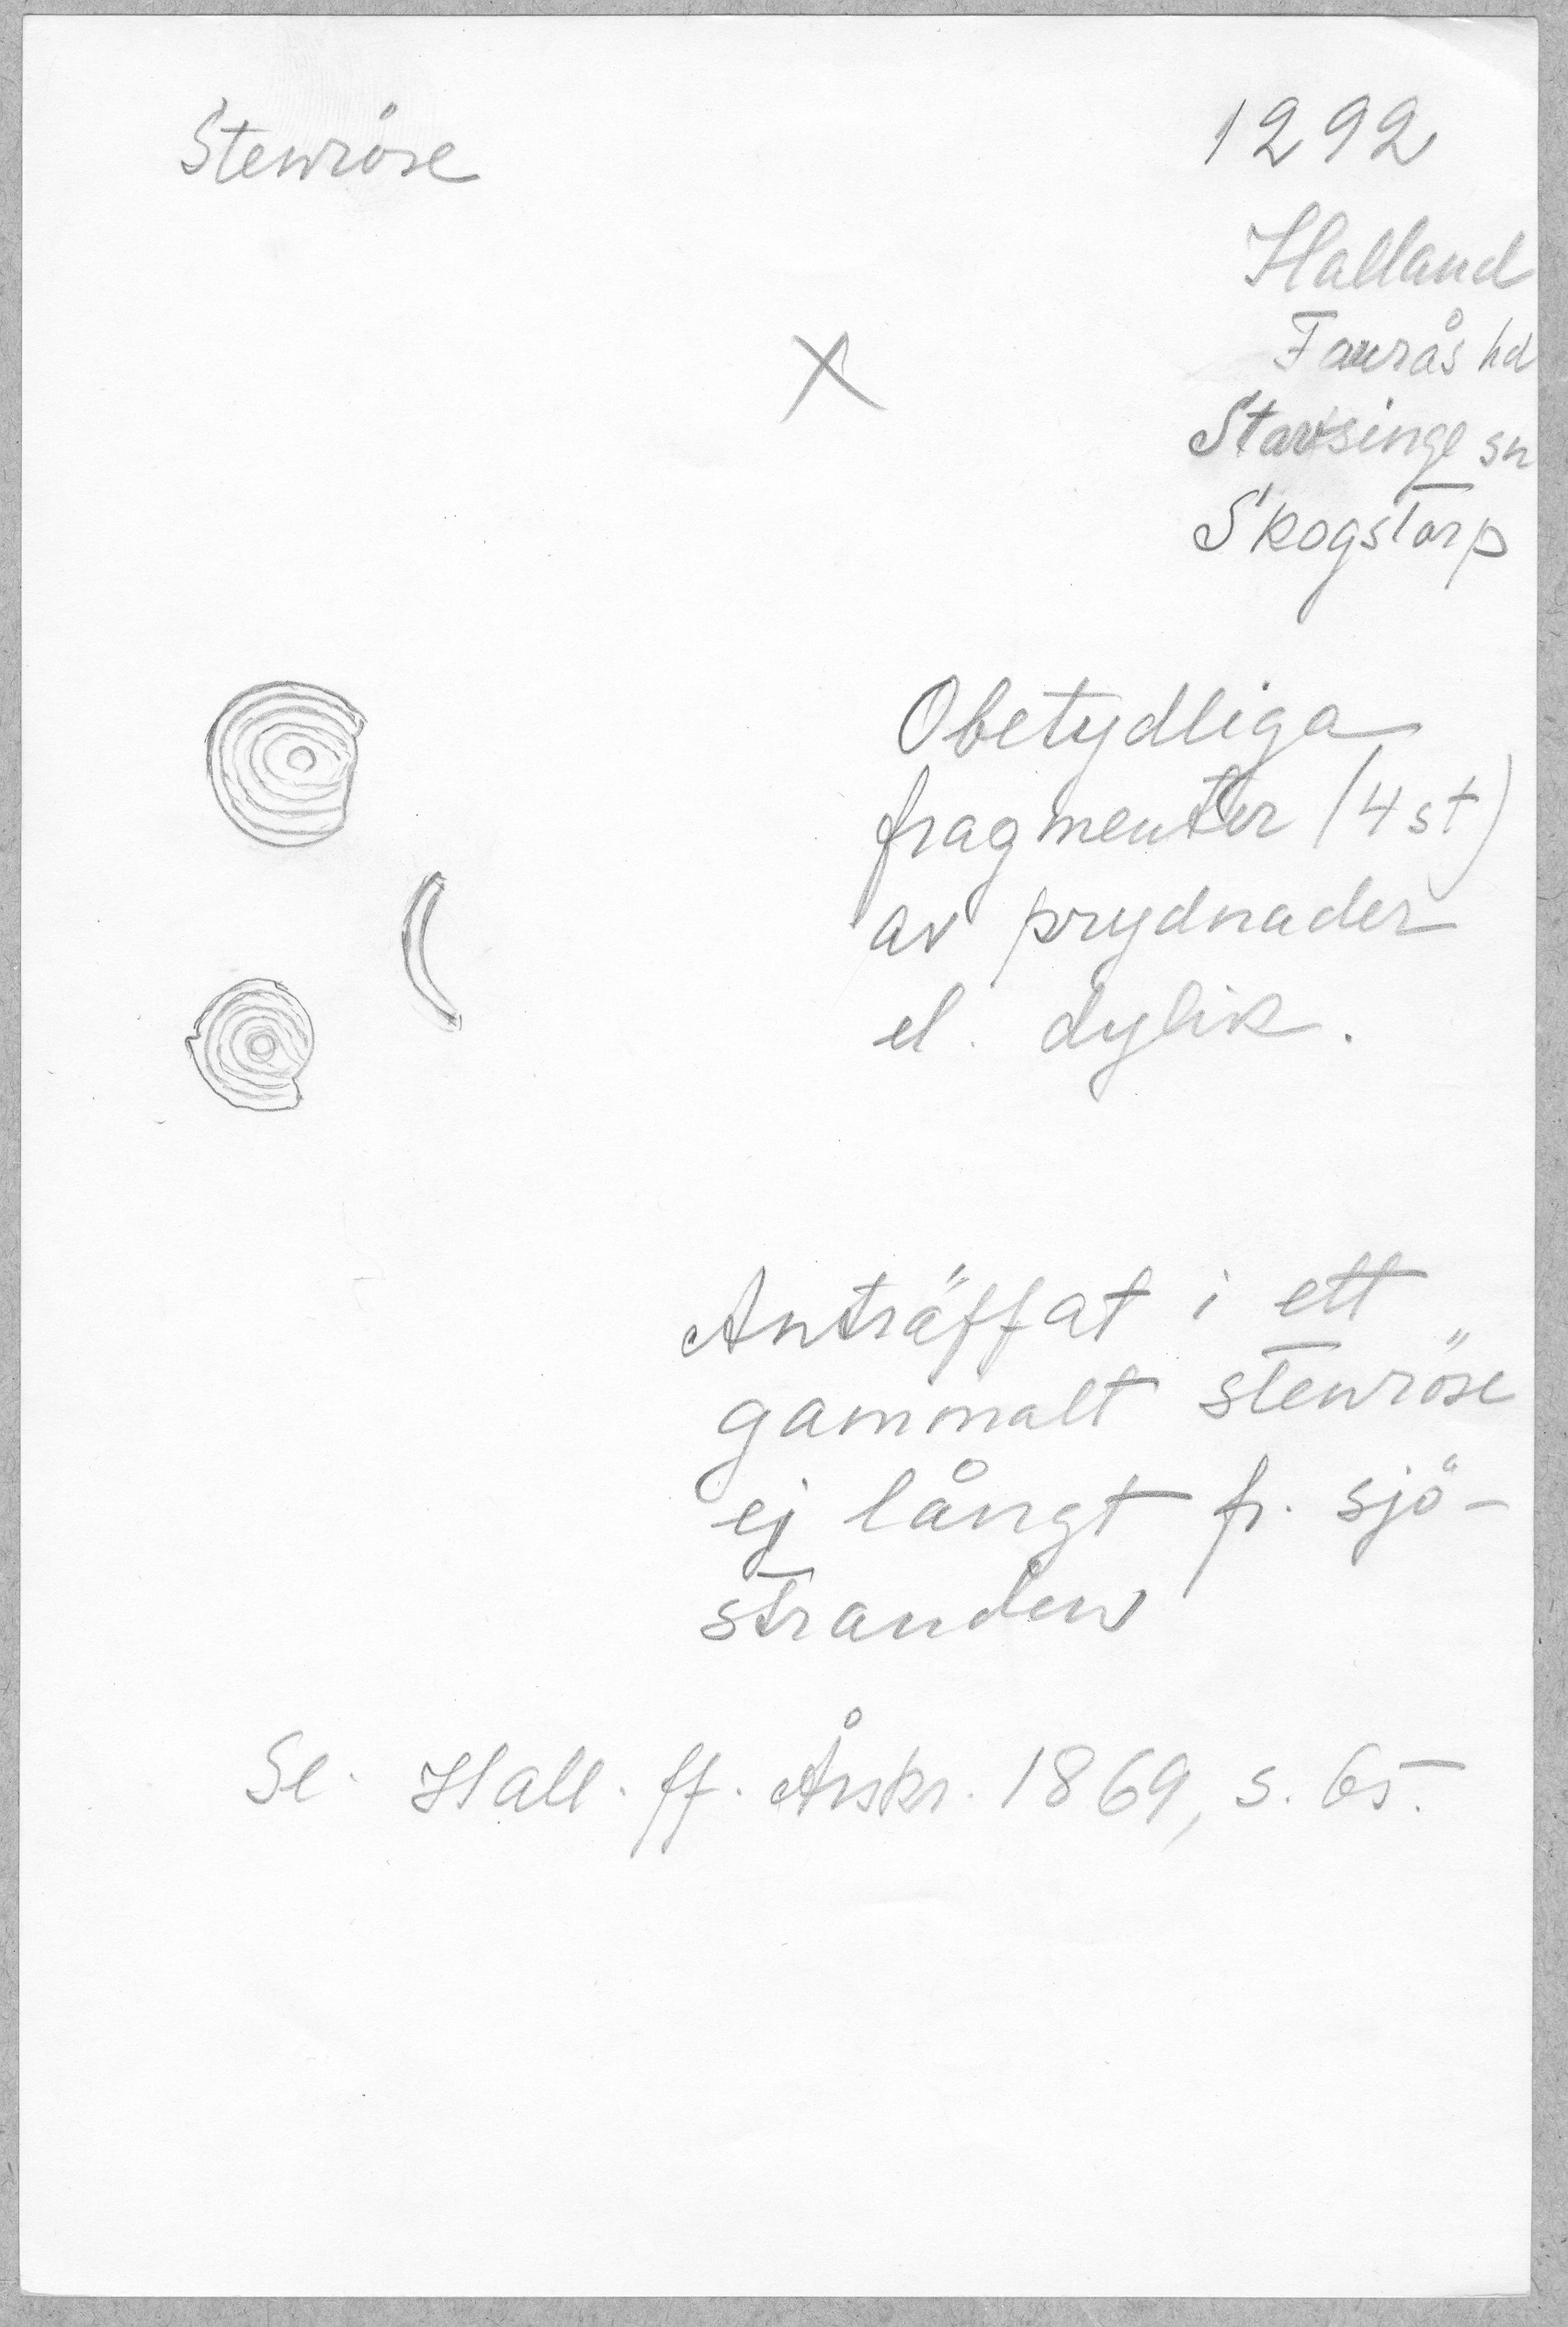 Stenröse
1292
Halland
Faurås hd
Stavsinge sn
Skogstorp
X
Obetydliga
fragmenter (4 st)
av prydnader
el. dylik.
Anträffat i ett
gammalt stenröse
ej långt fr. sjö-
stranden
Se. Hall. ff. Årskr. 1869, s. 65.